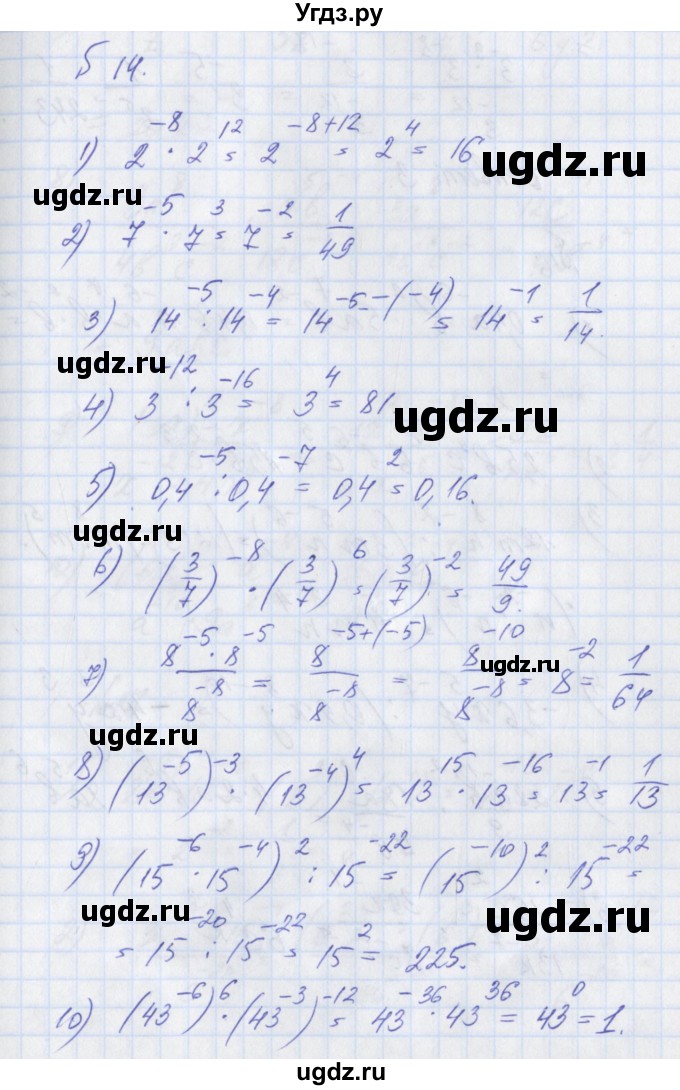 Угдз.ру
Б 14.
1) 2⁻⁸ · 2¹² = 2⁻⁸⁺¹² = 2⁴ = 16
ugdz.ru
ugdz.ru
2) 7⁻⁵ · 7³ = 7⁻² = 1/49
3) 14⁻⁵ : 14⁻⁴ = 14⁻⁵⁻⁽⁻⁴⁾ = 14⁻¹ = 1/14.
ugdz.ru
4) 3⁻¹² : 3⁻¹⁶ = 3⁴ = 81
ugdz.ru
5) 0,4⁻⁵ : 0,4⁻⁷ = 0,4² = 0,16.
ugdz.ru
6) (3/7)⁻⁸ · (3/7)⁶ = (3/7)⁻² = 49/9.
7) (8⁻⁵ · 8⁻⁵)/8⁻⁸ = 8⁻⁵⁺⁽⁻⁵⁾/8⁻⁸ = 8⁻¹⁰/8⁻⁸ = 8⁻² = 1/64
ugdz.ru
ugdz.ru
8) (13⁻⁵)⁻³ · (13⁻⁴)⁴ = 13¹⁵ · 13⁻¹⁶ = 13⁻¹ = 1/13
9) (15⁻⁶ · 15⁻⁴)² : 15⁻²² = (15⁻¹⁰)² : 15⁻²² =
ugdz.ru
ugdz.ru
= 15⁻²⁰ : 15⁻²² = 15² = 225.
10) (43⁻⁶)⁶ · (43⁻³)⁻¹² = 43⁻³⁶ · 43³⁶ = 43⁰ = 1.
ugdz.ru